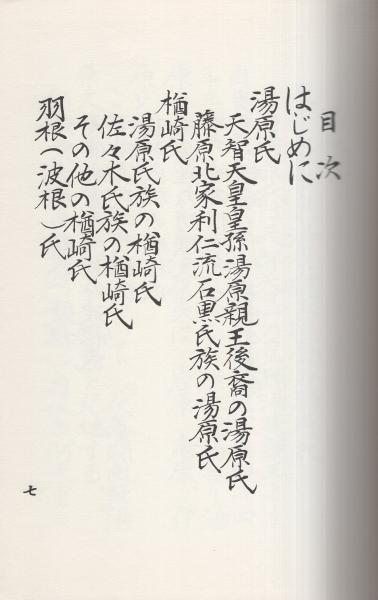 目次
はじめに
湯原氏
天智天皇皇孫湯原親王後裔の湯原氏
藤原北家利仁流石黒氏族の湯原氏
楢崎氏
湯原氏族の楢崎氏
佐々木氏族の楢崎氏
その他の楢崎氏
羽根(波根)氏
七